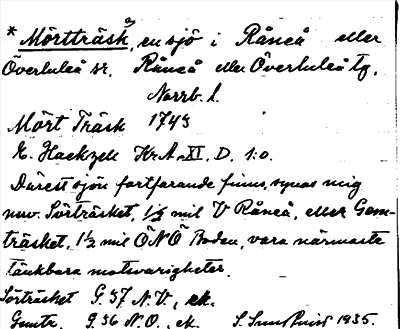 * Mörtträsk, en sjö i Råneå eller
Överluleå sn. Råneå eller Överluleå tg.
Norrb. l.
Mört Träsk 1743
E. Hackzell KrA XI, D, 1:0.
Därest sjön fortfarande finns, synas mig
nuv. Sörträsket, 1/2 mil V Råneå, eller Gom-
träsket, 1 1/2 mil ÖNÖ Boden, vara närmaste
tänkbara motsvarigheter.
Sörträsket G. 37 N.V., ek.
Gomtr. G. 36 N.O., ek. 1935.